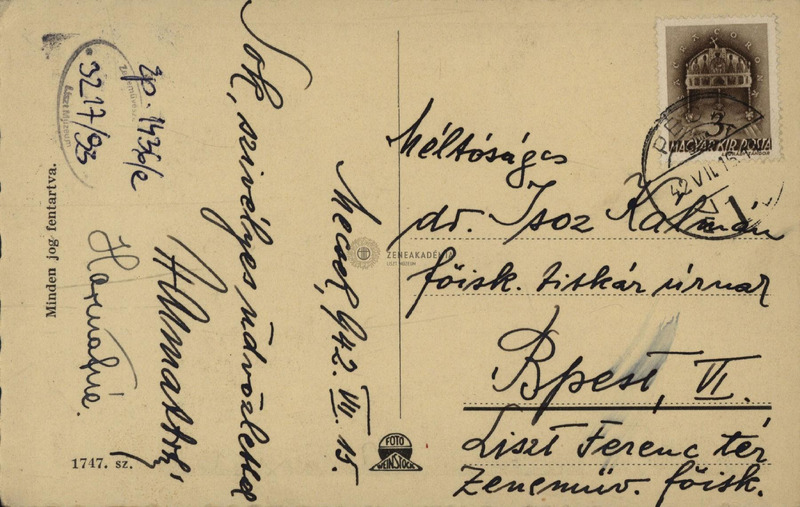 Sok, szívélyes üdvözlettel
Mecsek, 942. VII. 15.
zp. 143
3217/93
Liszt Múzeum
Minden jog fentartva.
1747. sz.
FOTO
WEINSTOCK
ZENEAKADÉMIA
LISZT MÚZEUM
SACRA CORONA
3
MAGYAR KIR. POSTA
42 VII. 15
Méltóságos
dr. Isoz Kálmán
főisk. titkár úrnak
Bpest, VI.
Liszt Ferenc tér
Zeneműv. főisk.